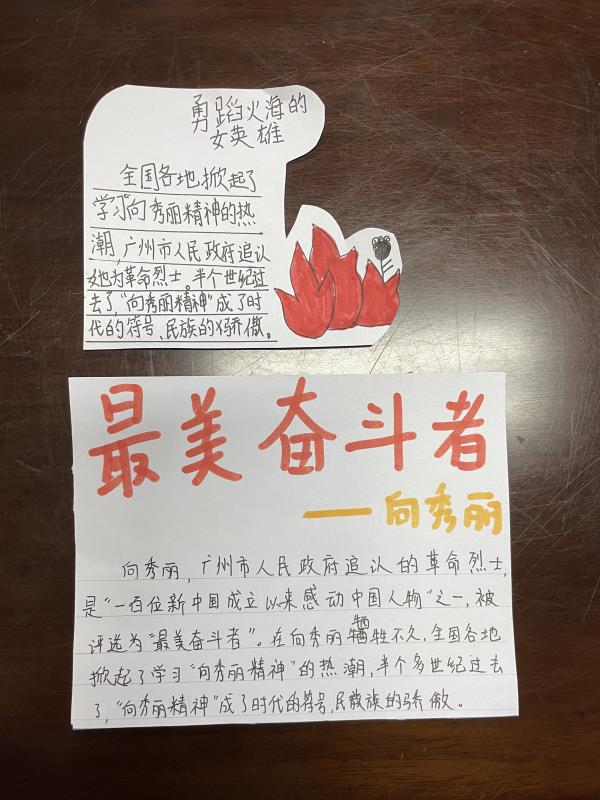 勇蹈火海的
女英雄
全国各地掀起了
学习"向秀丽精神的热
潮,广州市人民政府追认
她为革命烈士。半个世纪过
去了,"向秀丽精神"成了时
代的符号、民族的骄傲。
最美奋斗者
——向秀丽
向秀丽,广州市人民政府追认的革命烈士,
是"一百位新中国成立以来感动中国人物"之一,被
评选为"最美奋斗者"。在向秀丽牺牲不久,全国各地
掀起了学习"向秀丽精神"的热潮,半个多世纪过去
了,"向秀丽精神"成了时代的符号,民族的骄傲。